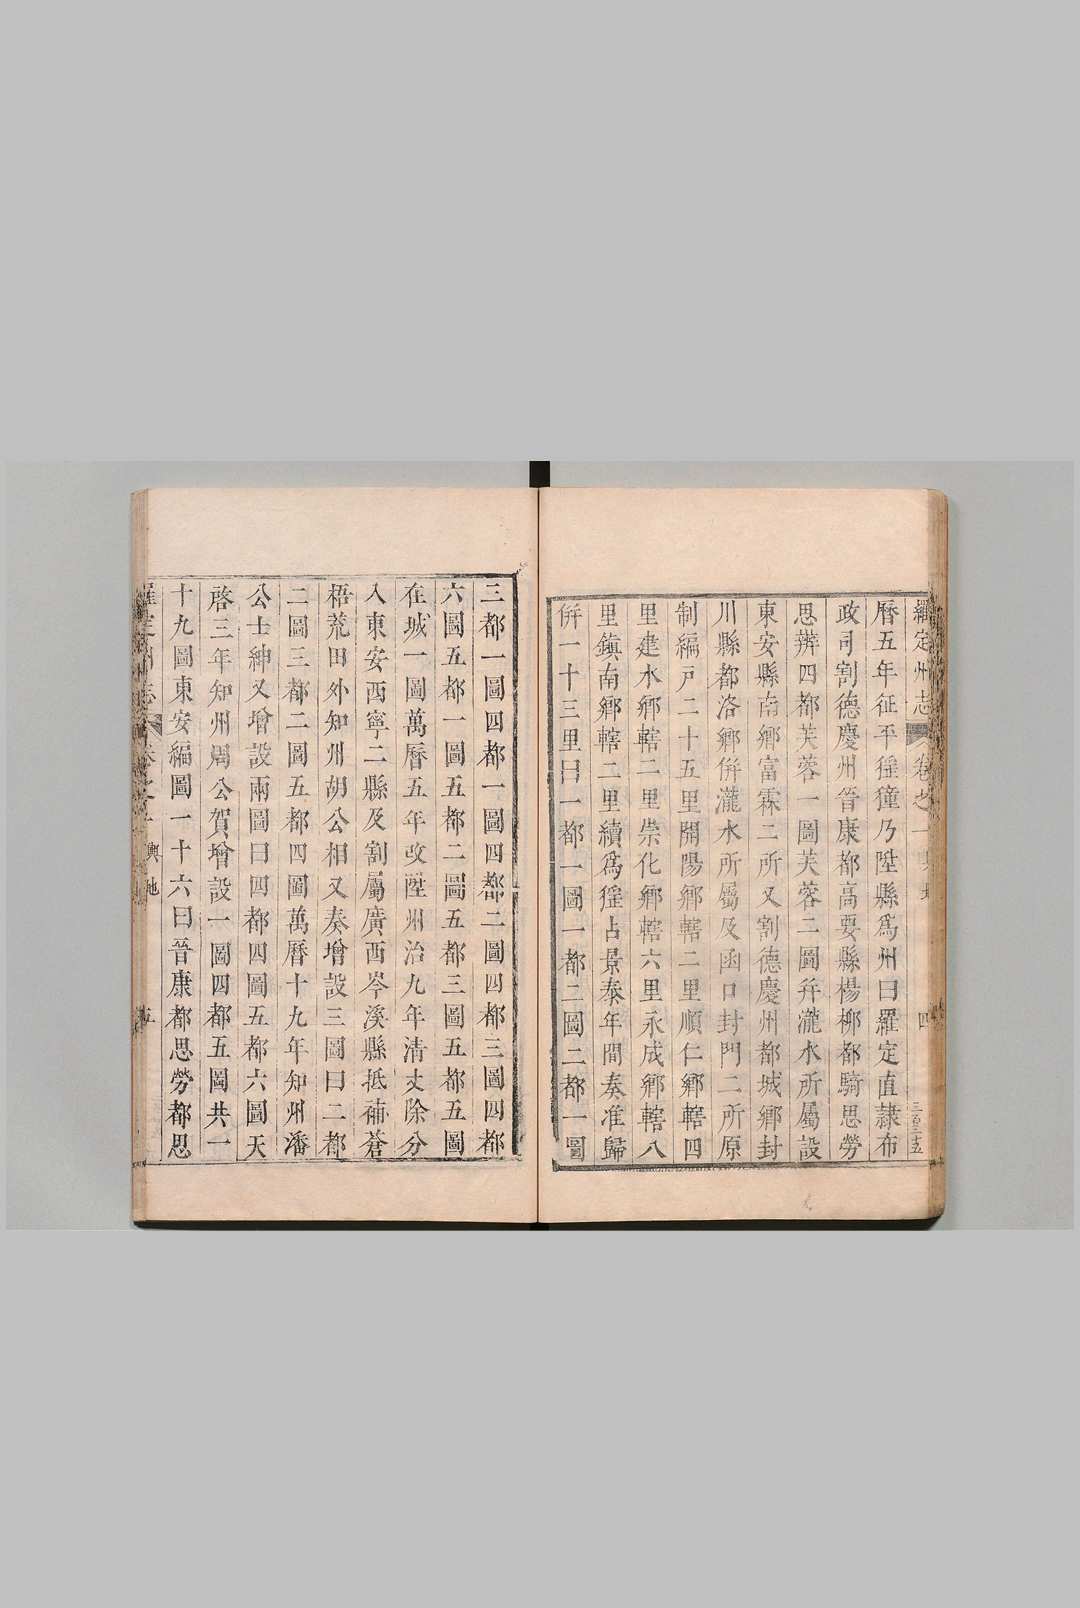 羅定州志 卷之一 四 三百三五
曆五年征平徭獞乃陞縣爲州曰羅定直隷布
政司割德慶州晉康都高要縣楊柳都騎思勞
思辨四都芙蓉一圖芙蓉二圖幷瀧水所屬設
東安縣南鄉富霖二所又割德慶州都城鄉封
川縣都洛鄉併瀧水所屬及函口封門二所原
制編戸二十五里開陽鄉轄二里順仁鄉轄四
里建水鄉轄二里崇化鄉轄六里永成鄉轄八
里鎮南鄉轄二里續爲徭占景泰年間奏准歸
併一十三里曰一都一圖一都二圖二都一圖
三都一圖四都一圖四都二圖四都三圖四都
六圖五都一圖五都二圖五都三圖五都五圖
在城一圖萬曆五年改陞州治九年清丈除分
入東安西寧二縣及割屬廣西岑溪縣抵補蒼
梧荒田外知州胡公相又奏增設三圖曰二都
二圖三都二圖五都四圖萬曆十九年知州潘
公士紳又增設兩圖曰四都四圖五都六圖天
啓三年知州周公賀增設一圖四都五圖共一
十九圖東安編圖一十六曰晉康都思勞都思
羅定州志 卷之一 輿地 五